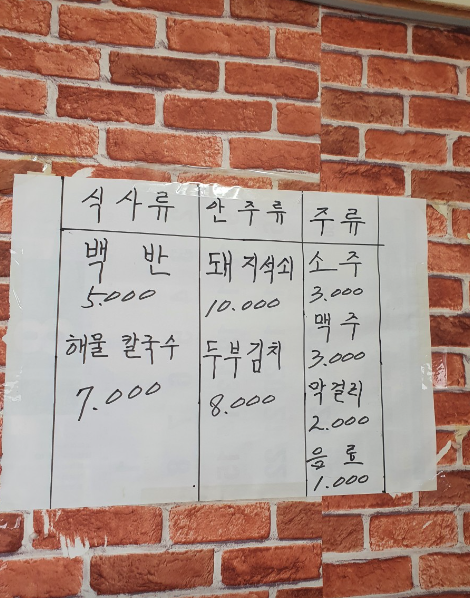 식사류 안주류 주류
백반 돼지석쇠 소주
5.000 10.000 3.000
해물 칼국수 두부김치 맥주
7.000 8.000 3.000
막걸리
2.000
음료
1.000